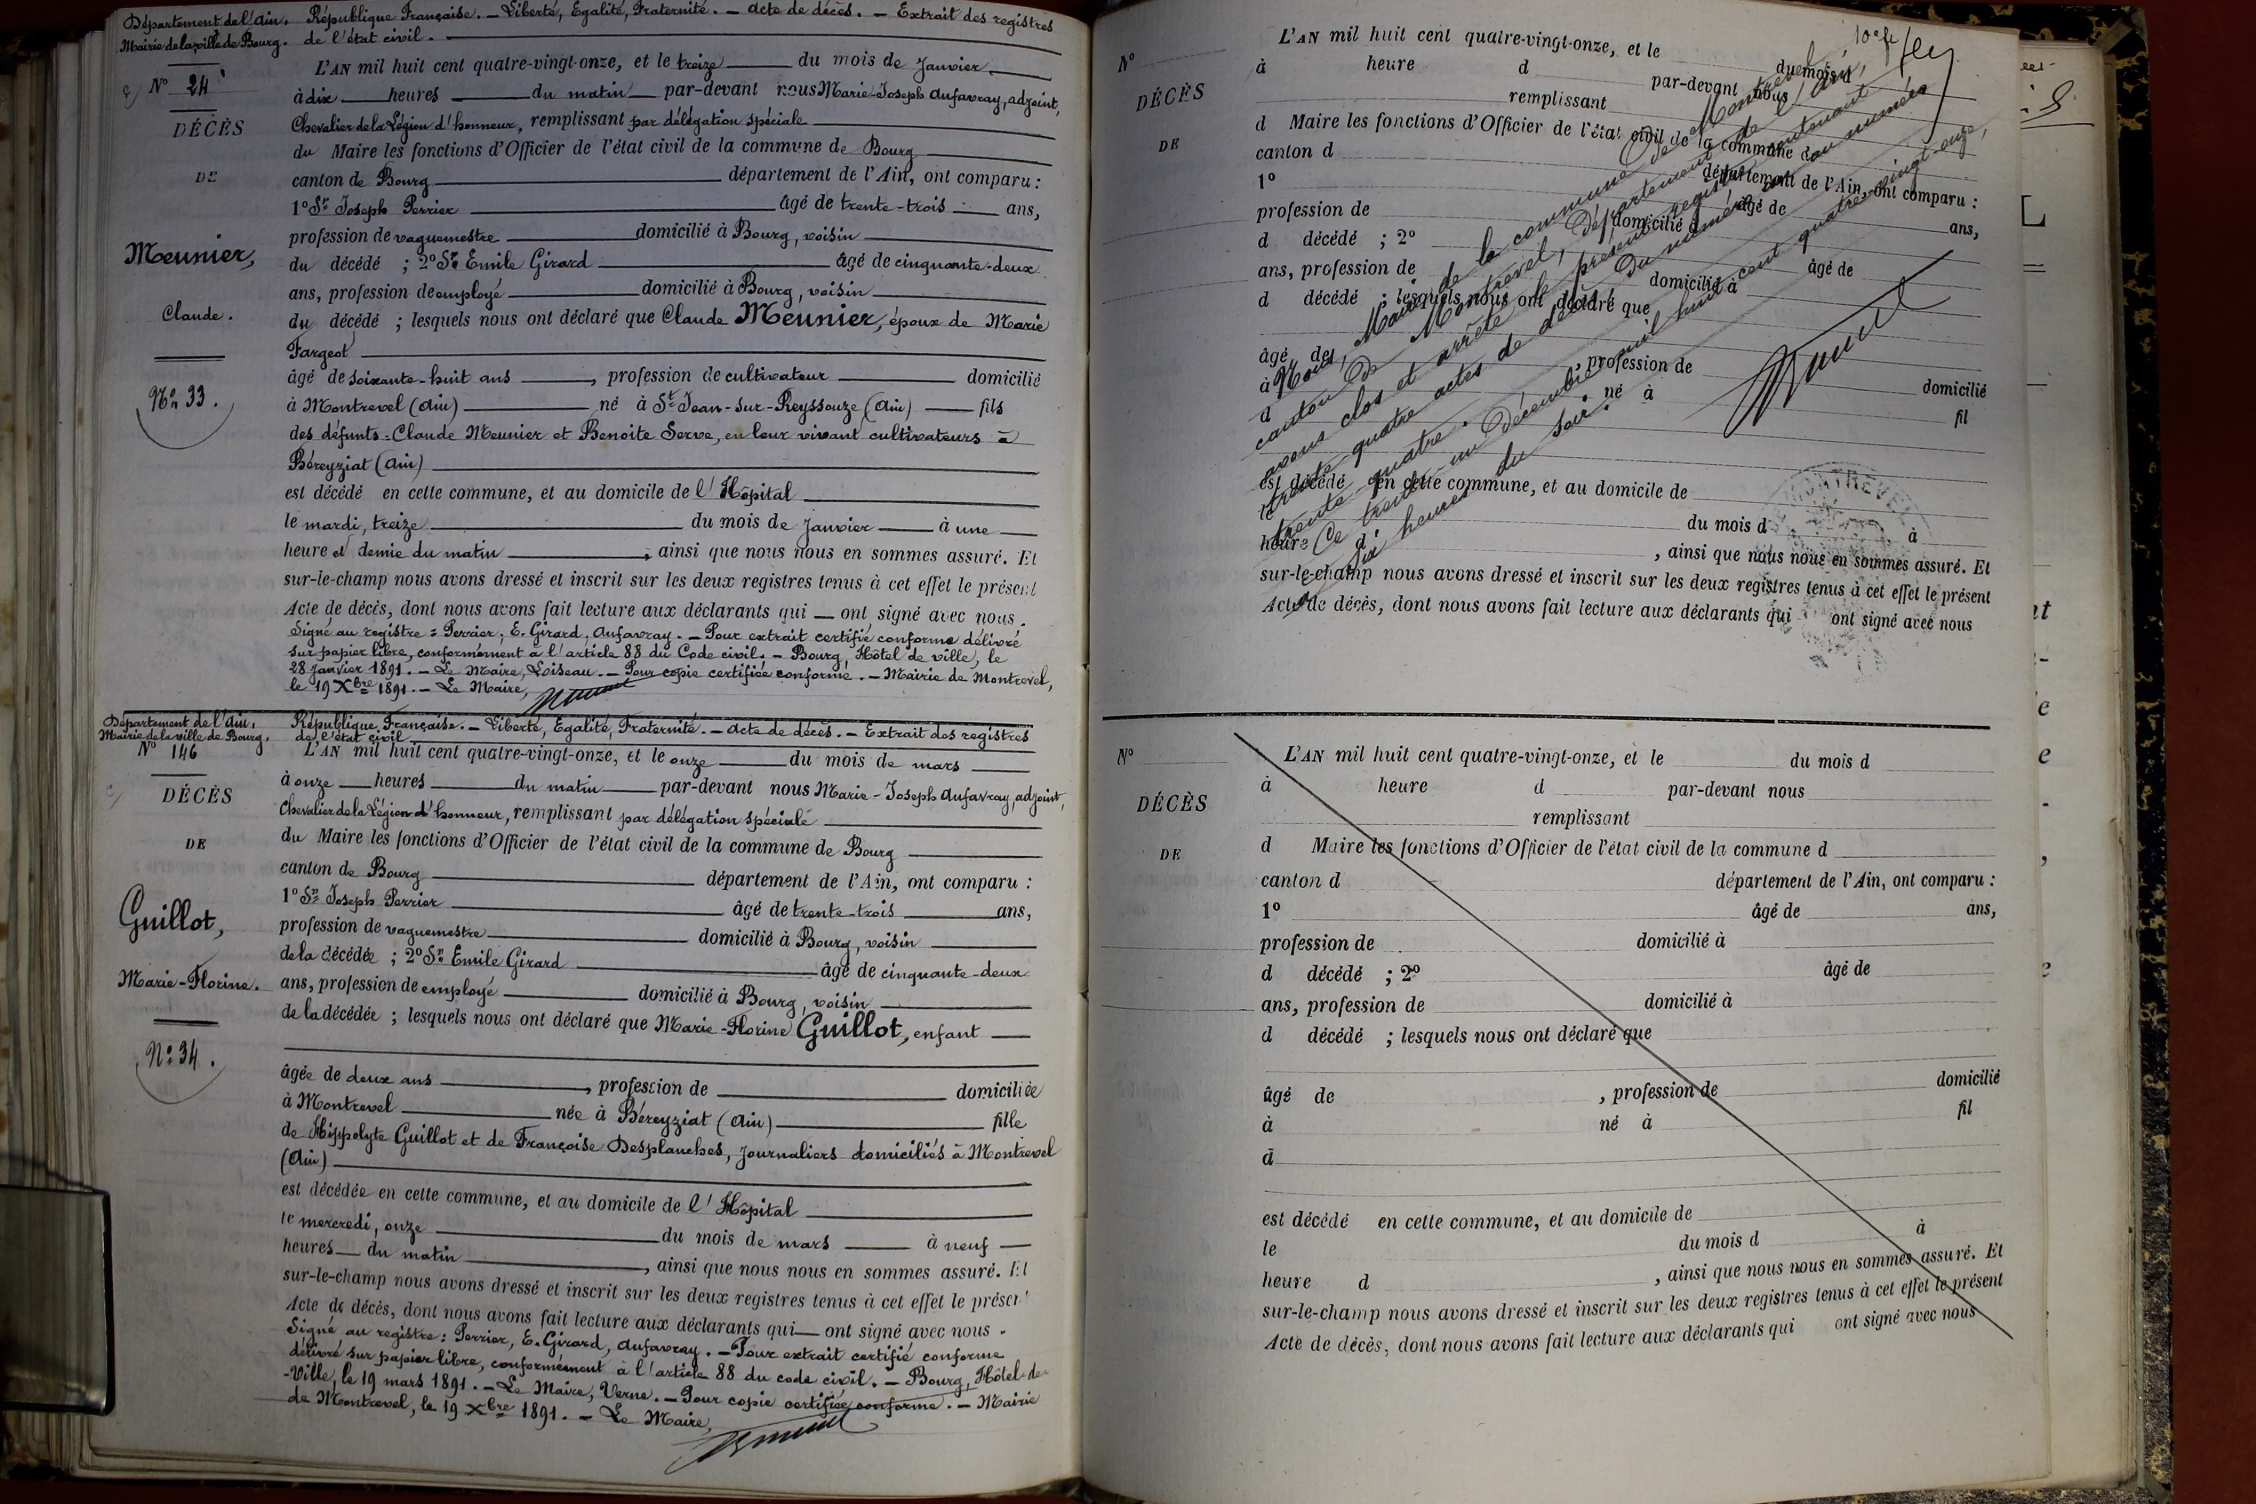 Département de l'Ain. République Française. — Liberté, Egalité, Fraternité. — Acte de décès. — Extrait des registres
Mairie de la ville de Bourg. de l'état civil.
N° 24
DÉCÈS
DE
Meunier,
Claude.
N° 33.
L'AN mil huit cent quatre-vingt-onze, et le treize du mois de Janvier
à dix heures du matin par-devant nous Marie-Joseph Aufavray, adjoint,
Chevalier de la Légion d'honneur, remplissant par délégation spéciale
du Maire les fonctions d'Officier de l'état civil de la commune de Bourg
canton de Bourg département de l'Ain, ont comparu :
1° Sr Joseph Perrier âgé de trente-trois ans,
profession de vaguemestre domicilié à Bourg, voisin
du décédé ; 2° Sr Emile Girard âgé de cinquante-deux
ans, profession de employé domicilié à Bourg, voisin
du décédé ; lesquels nous ont déclaré que Claude Meunier, époux de Marie
Fargeot
âgé de soixante-huit ans , profession de cultivateur domicilié
à Montrevel (Ain) né à St Jean-sur-Reyssouze (Ain) fils
des défunts Claude Meunier et Benoite Serve, en leur vivant cultivateurs à
Béreyziat (Ain)
est décédé en cette commune, et au domicile de l'Hôpital
le mardi, treize du mois de Janvier à une
heure et demie du matin , ainsi que nous nous en sommes assuré. Et
sur-le-champ nous avons dressé et inscrit sur les deux registres tenus à cet effet le présent
Acte de décès, dont nous avons fait lecture aux déclarants qui — ont signé avec nous.
Signé au registre : Perrier, E. Girard, Aufavray. — Pour extrait certifié conforme délivré
sur papier libre, conformément à l'article 88 du Code civil. — Bourg, Hôtel de ville, le
28 janvier 1891. — Le Maire, Loiseau. — Pour copie certifiée conforme. — Mairie de Montrevel,
le 19 Xbre 1891. — Le Maire,
Département de l'Ain. République Française. — Liberté, Egalité, Fraternité. — Acte de décès. — Extrait des registres
Mairie de la ville de Bourg. de l'état civil
N° 146
DÉCÈS
DE
Guillot,
Marie-Florine.
N° 34.
L'AN mil huit cent quatre-vingt-onze, et le onze du mois de mars
à onze heures du matin par-devant nous Marie-Joseph Aufavray, adjoint,
Chevalier de la Légion d'honneur, remplissant par délégation spéciale
du Maire les fonctions d'Officier de l'état civil de la commune de Bourg
canton de Bourg département de l'Ain, ont comparu :
1° Sr Joseph Perrier âgé de trente-trois ans,
profession de vaguemestre domicilié à Bourg, voisin
de la décédée ; 2° Sr Emile Girard âgé de cinquante-deux
ans, profession de employé domicilié à Bourg, voisin
de la décédée ; lesquels nous ont déclaré que Marie-Florine Guillot, enfant
âgée de deux ans , profession de domiciliée
à Montrevel née à Béreyziat (Ain) fille
de Hippolyte Guillot et de Françoise Desplanches, journaliers domiciliés à Montrevel
(Ain)
est décédée en cette commune, et au domicile de l'Hôpital
le mercredi, onze du mois de mars à neuf
heures du matin , ainsi que nous nous en sommes assuré. Et
sur-le-champ nous avons dressé et inscrit sur les deux registres tenus à cet effet le présent
Acte de décès, dont nous avons fait lecture aux déclarants qui — ont signé avec nous.
Signé au registre : Perrier, E. Girard, Aufavray. — Pour extrait certifié conforme
délivré sur papier libre, conformément à l'article 88 du code civil. — Bourg, Hôtel-de
-Ville, le 19 mars 1891. — Le Maire, Verne. — Pour copie certifiée conforme. — Mairie
de Montrevel, le 19 Xbre 1891. — Le Maire,
N°
DÉCÈS
DE
L'AN mil huit cent quatre-vingt-onze, et le du mois d
à heure d par-devant nous
remplissant
d Maire les fonctions d'Officier de l'état civil de la commune d
canton d département de l'Ain, ont comparu :
1° âgé de ans,
profession de domicilié à
d décédé ; 2° âgé de
ans, profession de domicilié à
d décédé ; lesquels nous ont déclaré que
âgé de , profession de domicilié
à né à fil
d
est décédé en cette commune, et au domicile de
le du mois d à
heure d , ainsi que nous nous en sommes assuré. Et
sur-le-champ nous avons dressé et inscrit sur les deux registres tenus à cet effet le présent
Acte de décès, dont nous avons fait lecture aux déclarants qui ont signé avec nous
Nous, Maire de la commune de Montrevel,
canton de Montrevel, département de l'Ain,
avons clos et arrêté le présent registre contenant
trente quatre actes de décès du numéro un au numéro
trente quatre.
Ce trente un Décembre mil huit cent quatre-vingt-onze,
à six heures du soir.
MONTREVEL
N°
DÉCÈS
DE
L'AN mil huit cent quatre-vingt-onze, et le du mois d
à heure d par-devant nous
remplissant
d Maire les fonctions d'Officier de l'état civil de la commune d
canton d département de l'Ain, ont comparu :
1° âgé de ans,
profession de domicilié à
d décédé ; 2° âgé de
ans, profession de domicilié à
d décédé ; lesquels nous ont déclaré que
âgé de , profession de domicilié
à né à fil
d
est décédé en cette commune, et au domicile de
le du mois d à
heure d , ainsi que nous nous en sommes assuré. Et
sur-le-champ nous avons dressé et inscrit sur les deux registres tenus à cet effet le présent
Acte de décès, dont nous avons fait lecture aux déclarants qui ont signé avec nous